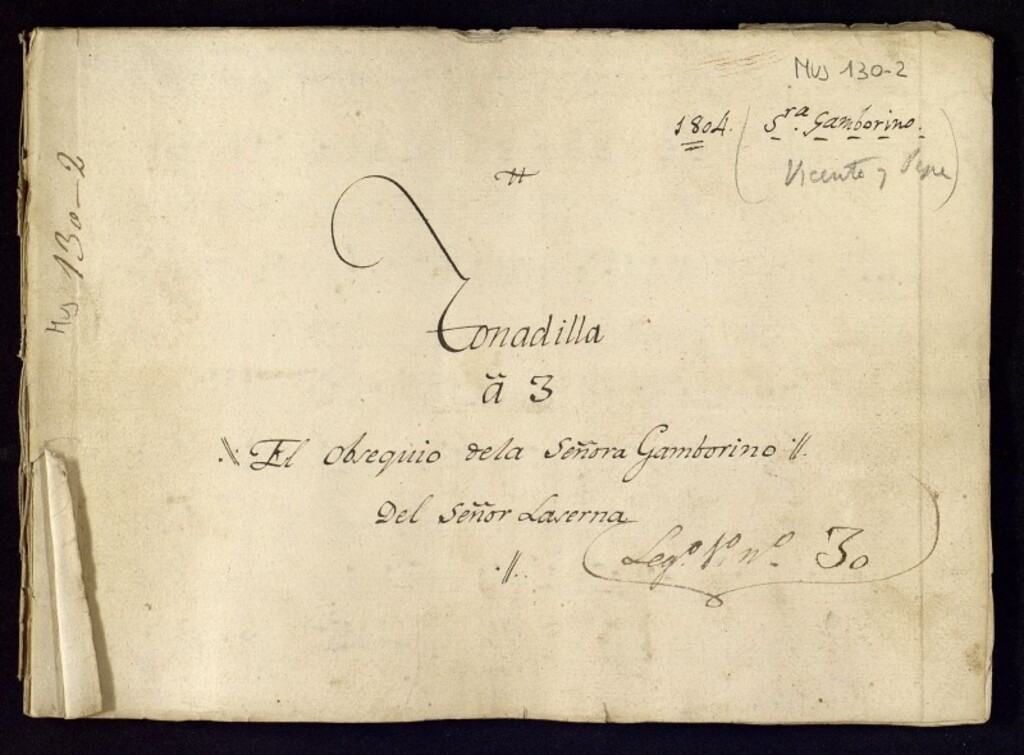 Mus 130-2
1804. (Sra. Gamborino.
Vicente y Pepe)
Tonadilla
a 3
El obsequio dela Señora Gamborino
Del Señor Laserna
Lego. 1o. no. 30
Mus 130-2